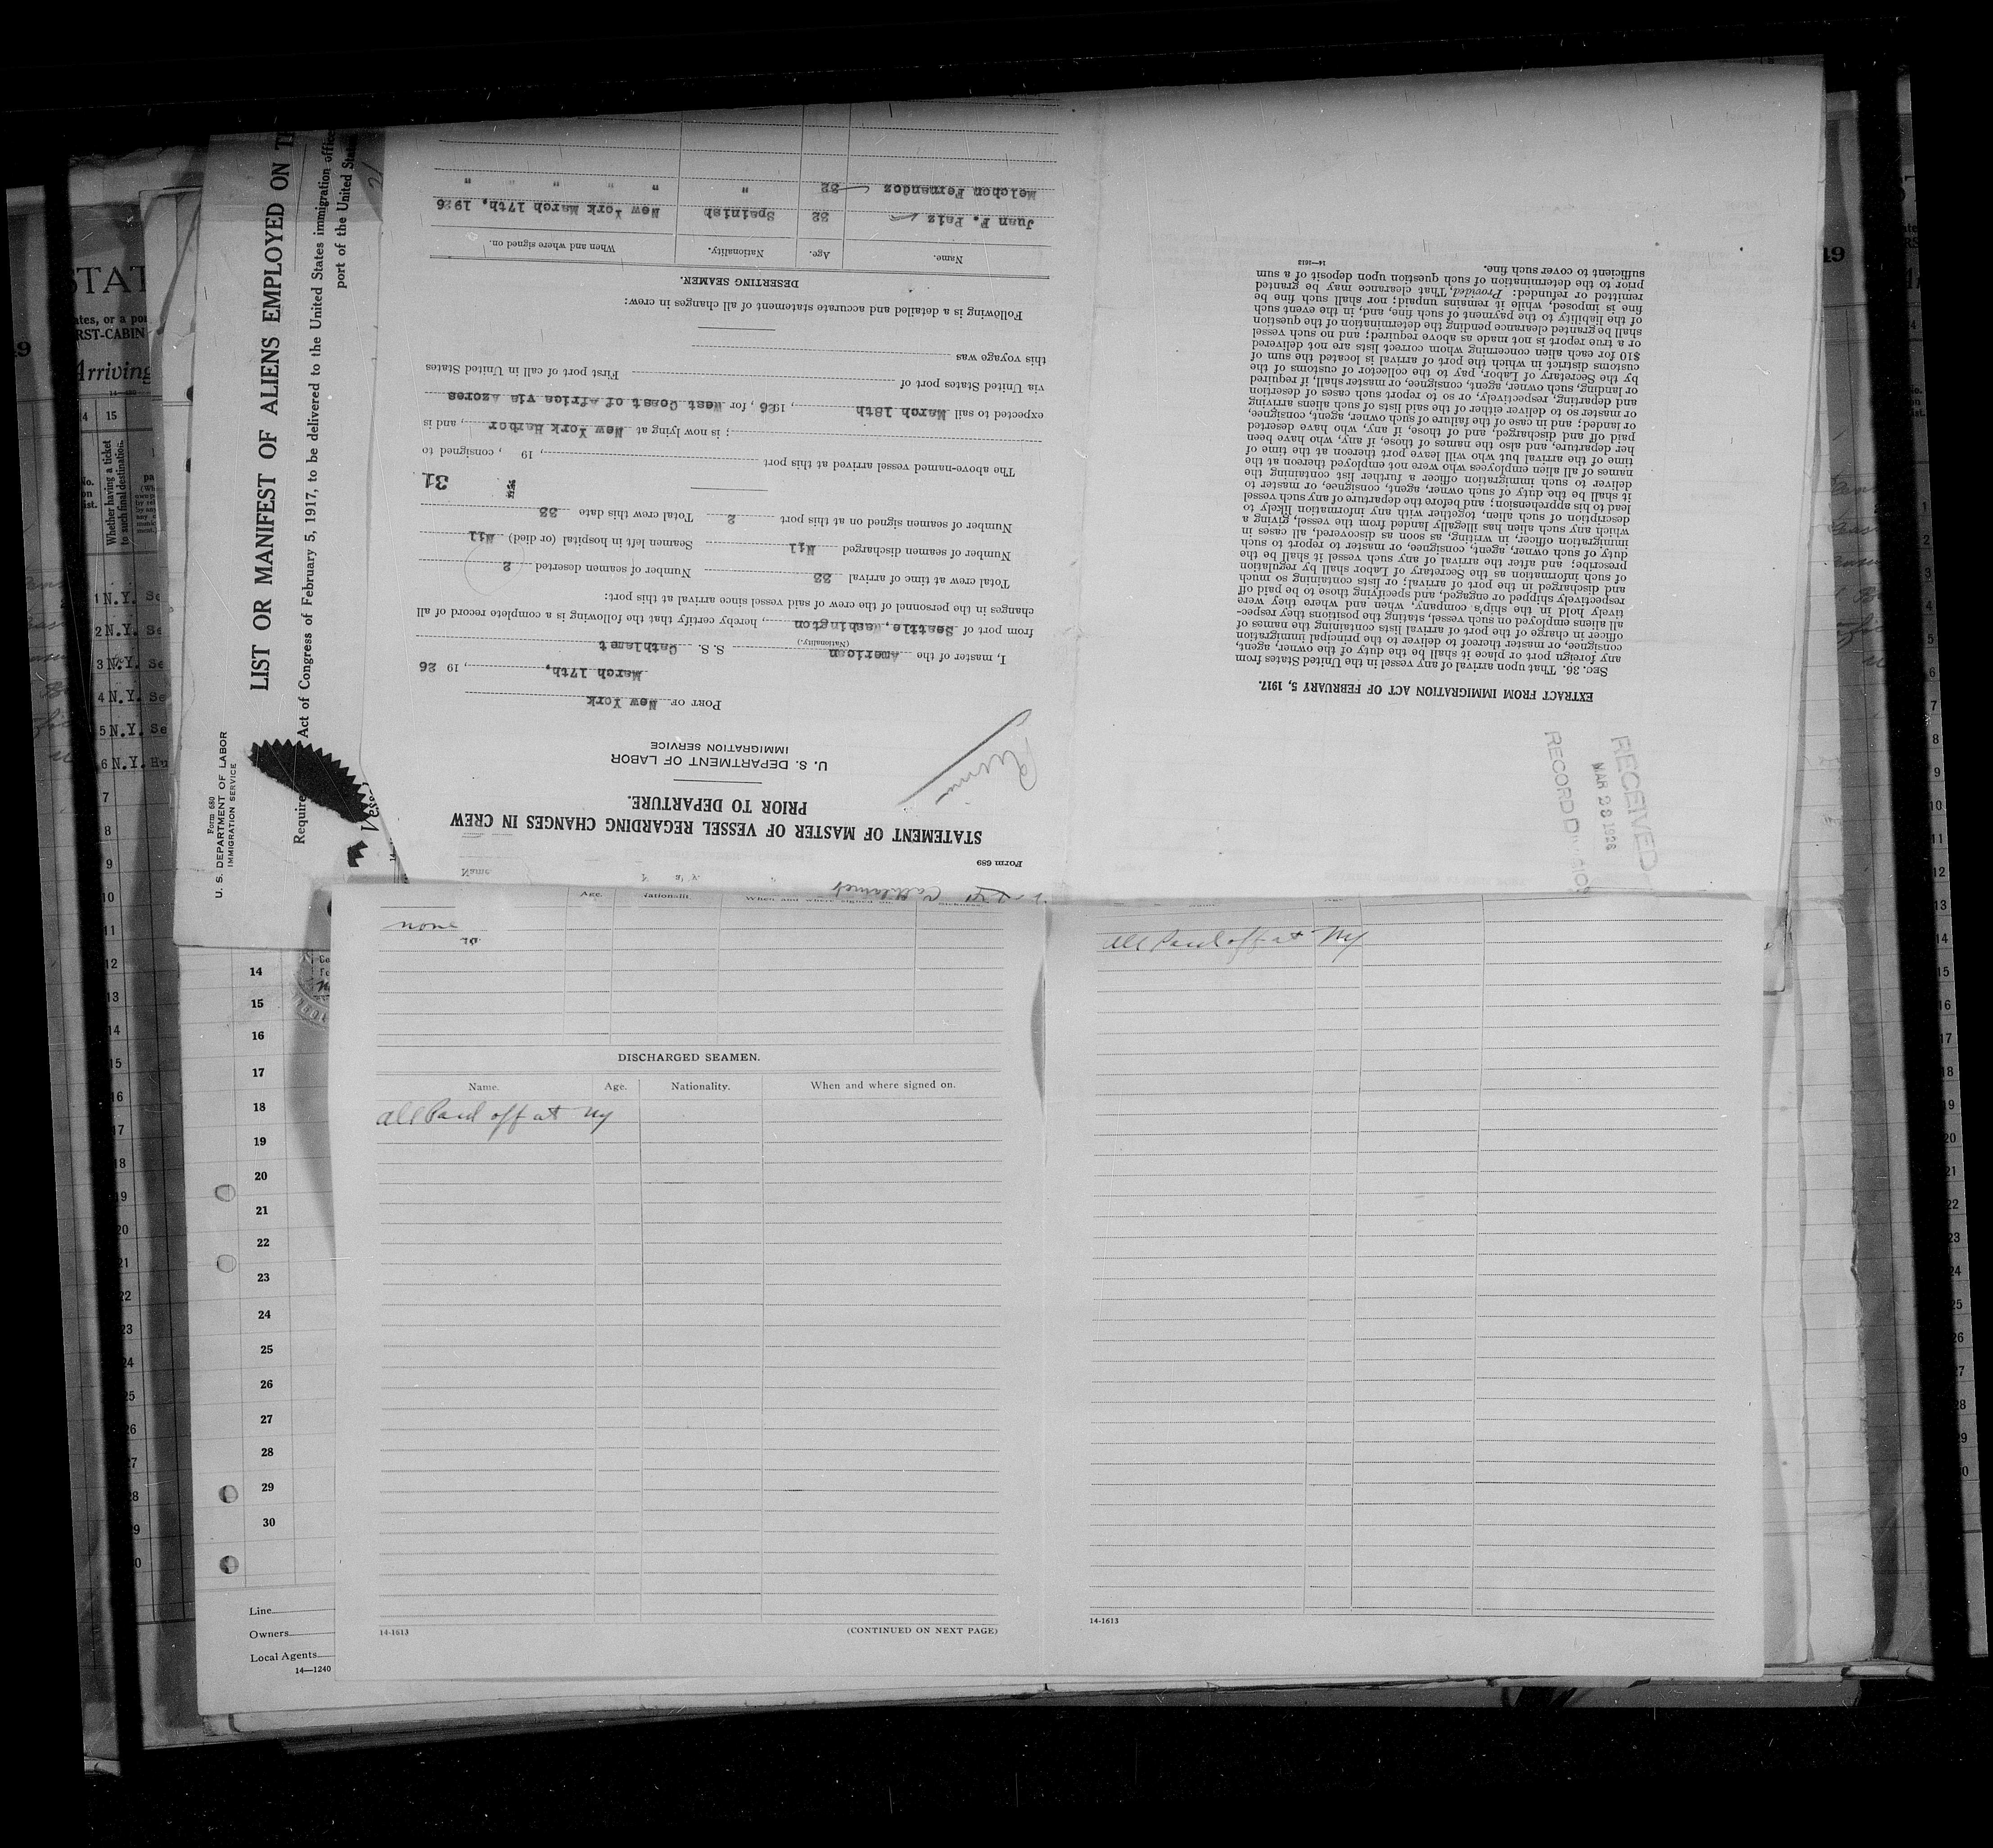 Form 689
STATEMENT OF MASTER OF VESSEL REGARDING CHANGES IN CREW
PRIOR TO DEPARTURE.
U. S. DEPARTMENT OF LABOR
IMMIGRATION SERVICE
PORT OF New York
March 17th, , 19 26
I, master of the American S. S. Cathlamet
(Nationality.)
from port of Seattle, Washington , hereby certify that the following is a complete record of all
changes in the personnel of the crew of said vessel since arrival at this port:
Total crew at time of arrival 33 Number of seamen deserted 2
Number of seamen discharged Nil Seamen left in hospital (or died) Nil
Number of seamen signed on at this port 2 Total crew this date 33
31
The above-named vessel arrived at this port , 19 , consigned to
; is now lying at New York Harbor , and is
expected to sail March 18th , 1926 , for West Coast of Africa via Azores
via United States port of First port of call in United States
this voyage was
Following is a detailed and accurate statement of all changes in crew:
DESERTING SEAMEN.
Name. Age. Nationality. When and where signed on.
Juan F. Paiz 32 Spanish New York March 17th, 1926
Melchon Fernandez 32 " " " " " "
EXTRACT FROM IMMIGRATION ACT OF FEBRUARY 5, 1917.
Sec. 36. That upon arrival of any vessel in the United States from
any foreign port or place it shall be the duty of the owner, agent,
consignee, or master thereof to deliver to the principal immigration
officer in charge of the port of arrival lists containing the names of
all aliens employed on such vessel, stating the positions they respec-
tively hold in the ship's company, when and where they were
respectively shipped or engaged, and specifying those to be paid off
and discharged in the port of arrival; or lists containing so much
of such information as the Secretary of Labor shall by regulation
prescribe; and after the arrival of any such vessel it shall be the
duty of such owner, agent, consignee, or master to report to such
immigration officer, in writing, as soon as discovered, all cases in
which any such alien has illegally landed from the vessel, giving a
description of such alien, together with any information likely to
lead to his apprehension; and before the departure of any such vessel
it shall be the duty of such owner, agent, consignee, or master to
deliver to such immigration officer a further list containing the
names of all alien employees who were not employed thereon at the
time of the arrival but who will leave port thereon at the time of
her departure, and also the names of those, if any, who have been
paid off and discharged, and of those, if any, who have deserted
or landed; and in case of the failure of such owner, agent, consignee,
or master so to deliver either of the said lists of such aliens arriving
and departing, respectively, or so to report such cases of desertion
or landing, such owner, agent, consignee, or master shall, if required
by the Secretary of Labor, pay to the collector of customs of the
customs district in which the port of arrival is located the sum of
$10 for each alien concerning whom correct lists are not delivered
or a true report is not made as above required; and no such vessel
shall be granted clearance pending the determination of the question
of the liability to the payment of such fine, and, in the event such
fine is imposed, while it remains unpaid; nor shall such fine be
remitted or refunded: Provided, That clearance may be granted
prior to the determination of such question upon deposit of a sum
sufficient to cover such fine.
14—1613
RECEIVED
MAR 23 1926
RECORD DIVISION
Form 680
U. S. DEPARTMENT OF LABOR
IMMIGRATION SERVICE
LIST OR MANIFEST OF ALIENS EMPLOYED ON
Act of Congress of February 5, 1917, to be delivered to the United States immigration
port of the United
Cathlamet
none
DISCHARGED SEAMEN.
Name. Age. Nationality. When and where signed on.
all Paid off at Ny
14-1613 (CONTINUED ON NEXT PAGE)
all Paid off at Ny
14-1613
14
15
16
17
18
19
20
21
22
23
24
25
26
27
28
29
30
Line
Owners
Local Agents
14—1240
Arriving
Whether having a ticket
to such final destination.
1 N.Y.
2 N.Y.
3 N.Y.
4 N.Y.
5 N.Y.
6 N.Y.